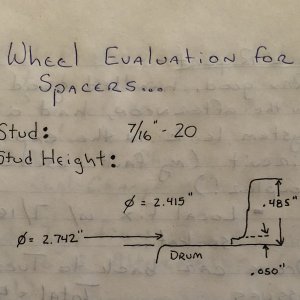 Wheel Evaluation for
Spacers...
Stud: 7/16" - 20
Stud Height:
Ø = 2.415" .485"
Ø = 2.742"
Drum
.050"